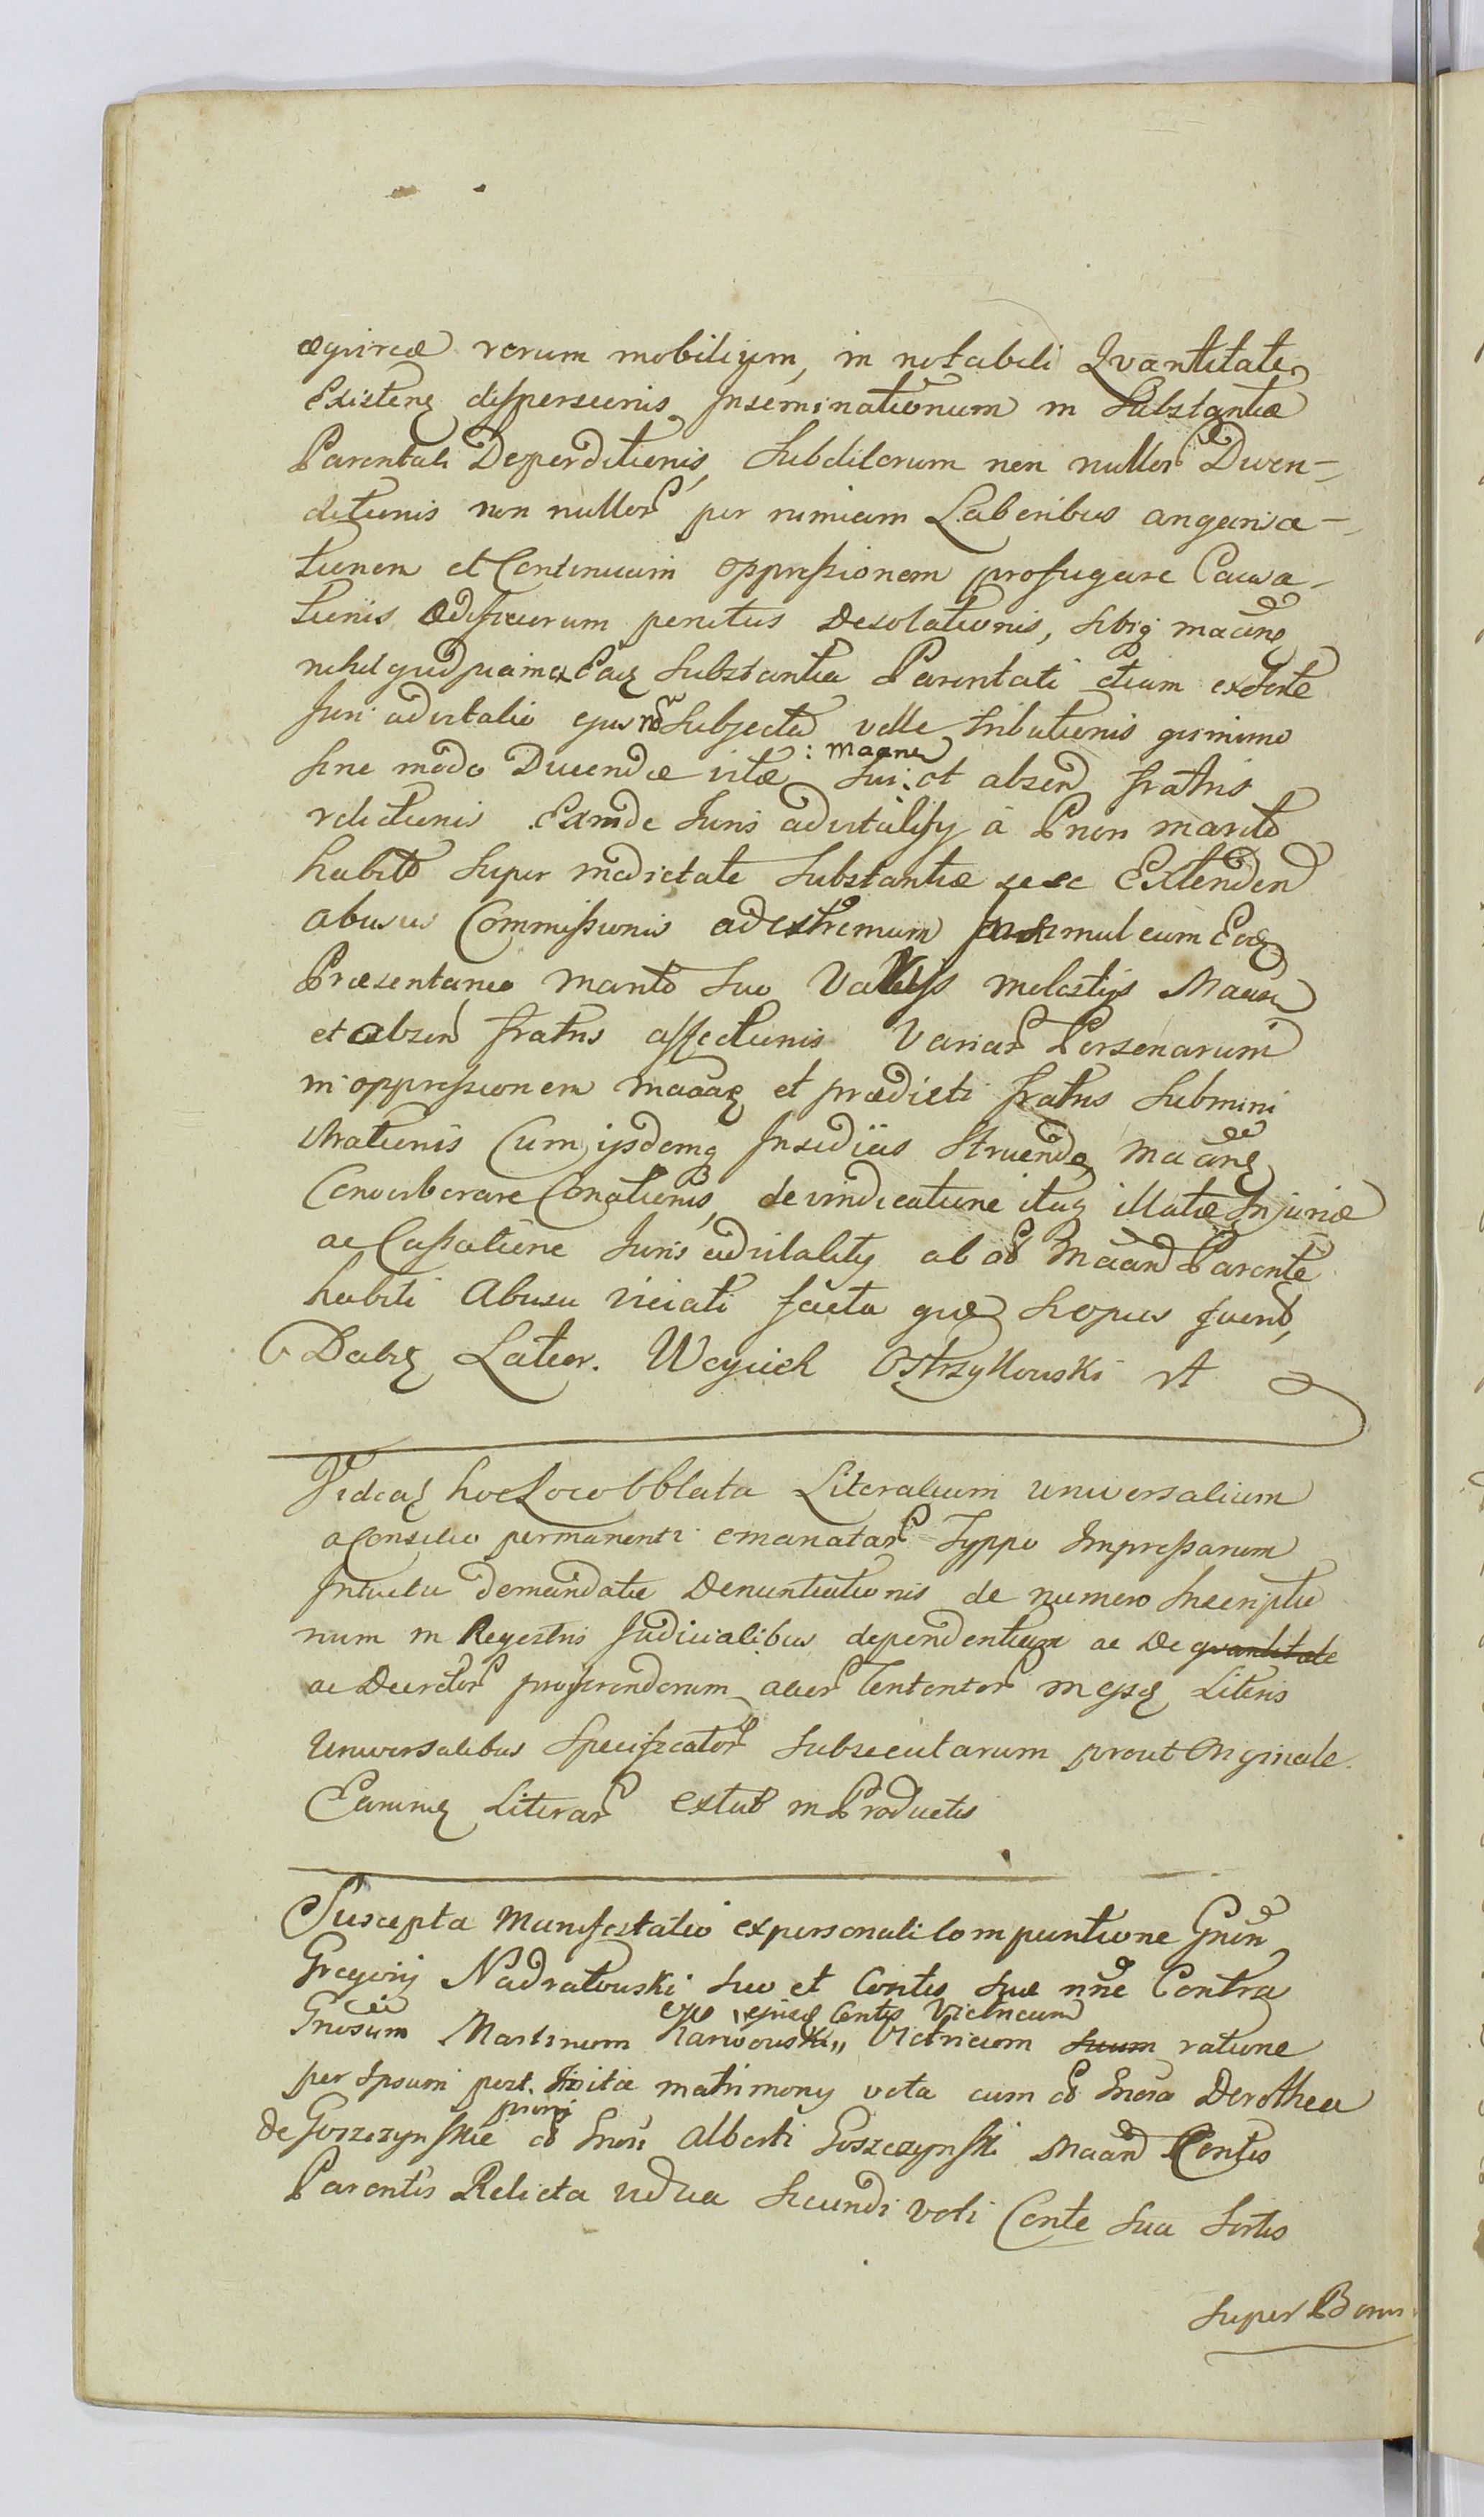 æquireæ rerum mobilium, in notabili Quantitate
Existen dispersionis Inseminationum in Substantia
Parentali Deperditionis, Subditorum non nullor Diven-
ditionis non nullor per nimiam Laboribus angaria-
tionem et Continuam oppressionem profugare Causa-
tionis Ædificiorum penitus Desolationis, sibiq maane
nihil quidpiam ex Eaq Substantia Parentali etiam ex sorte
Juri advitalio ejus no Subjecta velle tributionis quinimo
sine modo Ducendæ vitæ sui : maane : et absen fratris
relictionis Exinde Juris advitalitis à Pnon marito
habito Super medietate Substantiæ sese Extenden
abusus Commissionis ad extremum simul cum Eoq
Præsentaneo marito suo Varijs molestijs Maan
et absen fratris affectionis Variar Personarum
in oppressionem maaaq et prædicti fratris Submini
strationis Cum ijsdemq Insidiis Struend maane
Converberare Conationis, de vindicatione itaq illatæ Injuriæ
ac Cassatione Juris advitalitis ab od Maand Parente
habiti Abusu viciati facta quæ scopus fuerit,
Dabq Lator. Woyciech Ostrzykowski rt
Videaq hoc Loco Oblata Literalium universalium
a Consilio permanenti emanatar Typpo Impressarum
Intuitu demandatæ Denuntiationis de numero Inscriptio
num in Regestris Judicialibus dependentium ac De quantitate
ac Decretor proferendorum acier tentontor in ejsq Literis
Universalibus Specificator subsecutarum prout Originale
Earumq Literar extat in Productis
Suscepta Manifestatio ex personali Compuntione Gnen
Gregorij Nadratowski suo et Contis suæ nne Contra
Gnosum Martinum Karwowski, ejusq Contis Victricum Victricum suum ratione
per Ipsum post Inita matrimony vota cum od Gnosa Dorothea
de Goszczynskie primi od Gnosi Alberti Goszczynski Maand Contis
Parentis Relicta vidua Secundi voti Conte sua Sortis
Super Bonis